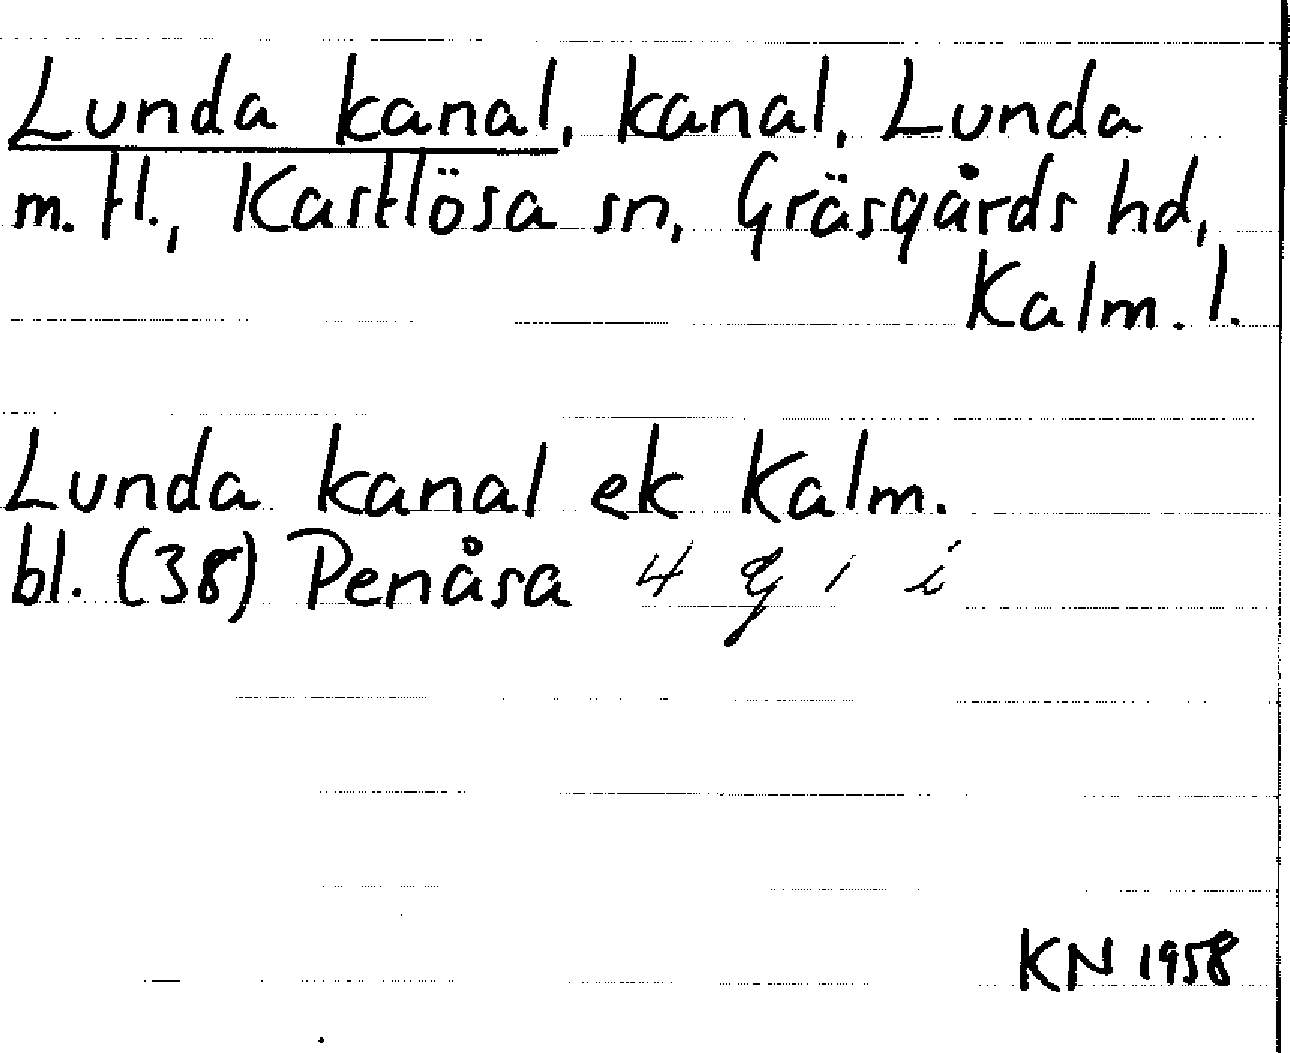 Lunda kanal, kanal, Lunda
m. fl., Kastlösa sn, Gräsgårds hd,
Kalm. l.
Lunda kanal ek Kalm.
bl. (38) Penåsa 4 g 1 i
KN 1958